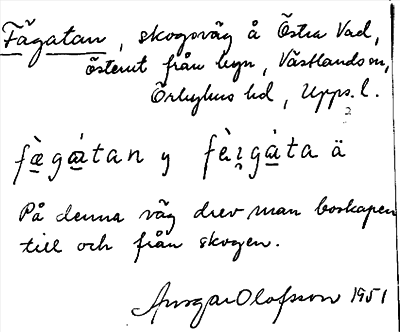 Fägatan, skogsväg å Östra Vad,
österut från byn, Västlands sn,
Örbyhus hd, Upps. l.
2
fæ̀gátan y fèrgáta ä
På denna väg drev man boskapen
till och från skogen.
Ansgar Olofsson 1951